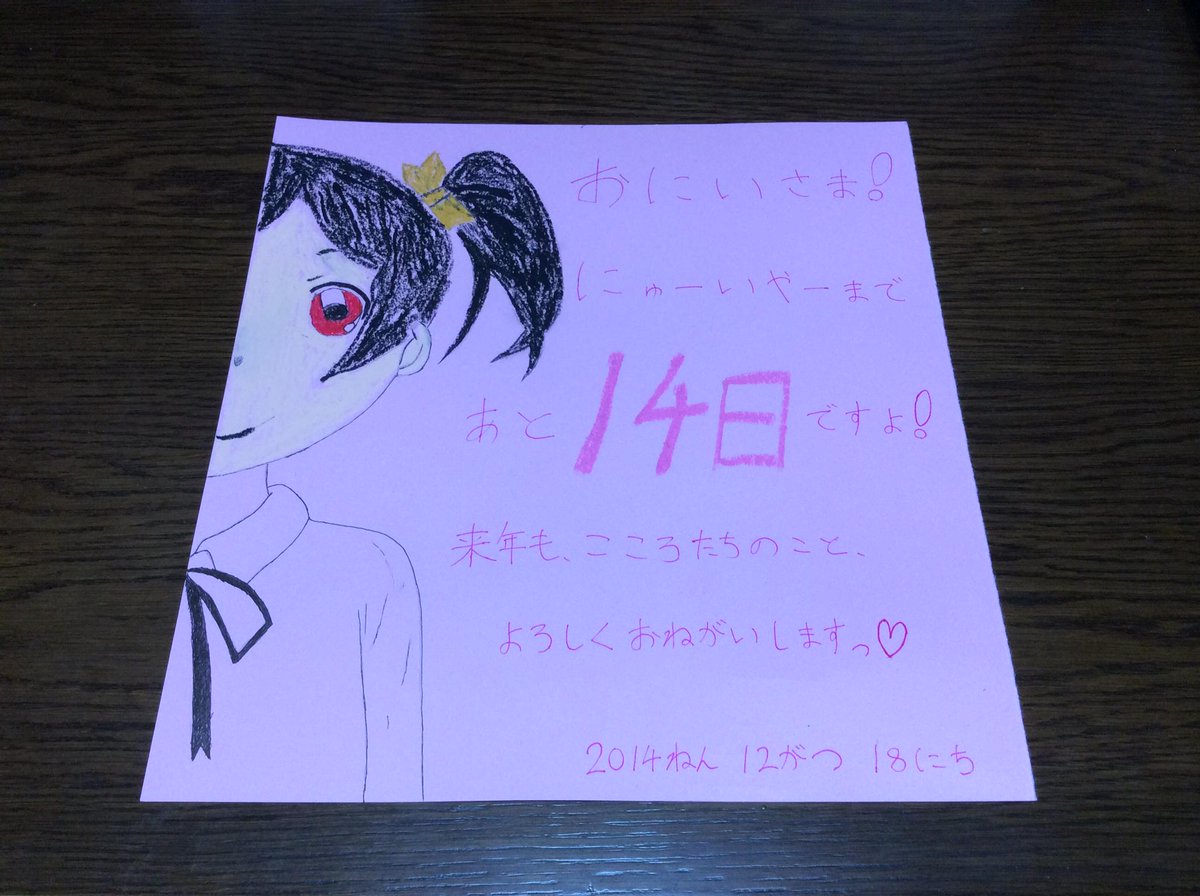 おにいさま!
にゅーいやーまで
あと14日ですよ!
来年も、こころたちのこと、
よろしくおねがいしますっ♡
2014ねん 12がつ 18にち